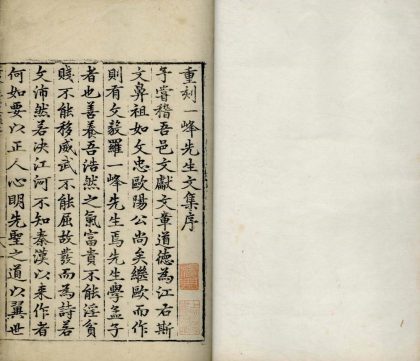 重刻一峰先生文集序
予嘗稽吾邑文獻文章道德為江右斯
文鼻祖如文忠歐陽公尚矣繼歐而作
則有文毅羅一峰先生焉先生學孟子
者也善養吾浩然之氣富貴不能淫貧
賤不能移威武不能屈故發而為詩若
文沛然若決江河不知秦漢以來作者
何如要以正人心明先聖之道以翼世